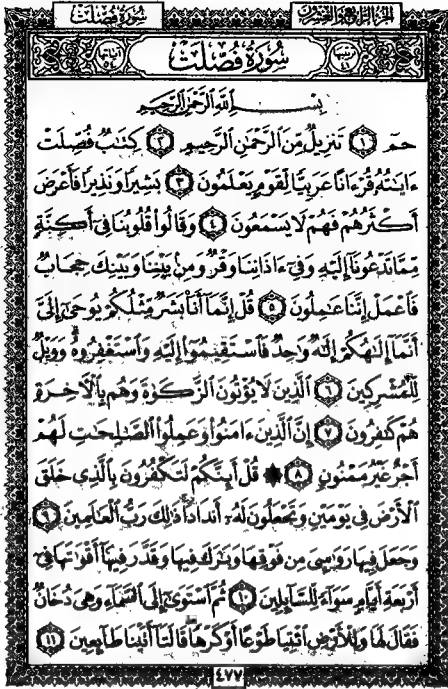 الجزء الرابع والعشرون
سورة فصلت
سورة فصلت
بسم الله الرحمن الرحيم
حمٓ ١ تَنزِيلٌ مِّنَ ٱلرَّحْمَٰنِ ٱلرَّحِيمِ ٢ كِتَٰبٌ فُصِّلَتْ
ءَايَٰتُهُۥ قُرْءَانًا عَرَبِيًّا لِّقَوْمٍ يَعْلَمُونَ ٣ بَشِيرًا وَنَذِيرًا فَأَعْرَضَ
أَكْثَرُهُمْ فَهُمْ لَا يَسْمَعُونَ ٤ وَقَالُوا۟ قُلُوبُنَا فِىٓ أَكِنَّةٍ
مِّمَّا تَدْعُونَآ إِلَيْهِ وَفِىٓ ءَاذَانِنَا وَقْرٌ وَمِنۢ بَيْنِنَا وَبَيْنِكَ حِجَابٌ
فَٱعْمَلْ إِنَّنَا عَٰمِلُونَ ٥ قُلْ إِنَّمَآ أَنَا۠ بَشَرٌ مِّثْلُكُمْ يُوحَىٰٓ إِلَىَّ
أَنَّمَآ إِلَٰهُكُمْ إِلَٰهٌ وَٰحِدٌ فَٱسْتَقِيمُوٓا۟ إِلَيْهِ وَٱسْتَغْفِرُوهُ وَوَيْلٌ
لِّلْمُشْرِكِينَ ٦ ٱلَّذِينَ لَا يُؤْتُونَ ٱلزَّكَوٰةَ وَهُم بِٱلْءَاخِرَةِ
هُمْ كَٰفِرُونَ ٧ إِنَّ ٱلَّذِينَ ءَامَنُوا۟ وَعَمِلُوا۟ ٱلصَّٰلِحَٰتِ لَهُمْ
أَجْرٌ غَيْرُ مَمْنُونٍ ٨ ۞ قُلْ أَئِنَّكُمْ لَتَكْفُرُونَ بِٱلَّذِى خَلَقَ
ٱلْأَرْضَ فِى يَوْمَيْنِ وَتَجْعَلُونَ لَهُۥٓ أَندَادًا ذَٰلِكَ رَبُّ ٱلْعَٰلَمِينَ ٩
وَجَعَلَ فِيهَا رَوَٰسِىَ مِن فَوْقِهَا وَبَٰرَكَ فِيهَا وَقَدَّرَ فِيهَآ أَقْوَٰتَهَا فِىٓ
أَرْبَعَةِ أَيَّامٍ سَوَآءً لِّلسَّآئِلِينَ ١٠ ثُمَّ ٱسْتَوَىٰٓ إِلَى ٱلسَّمَآءِ وَهِىَ دُخَانٌ
فَقَالَ لَهَا وَلِلْأَرْضِ ٱئْتِيَا طَوْعًا أَوْ كَرْهًا قَالَتَآ أَتَيْنَا طَآئِعِينَ ١١
٤٧٧